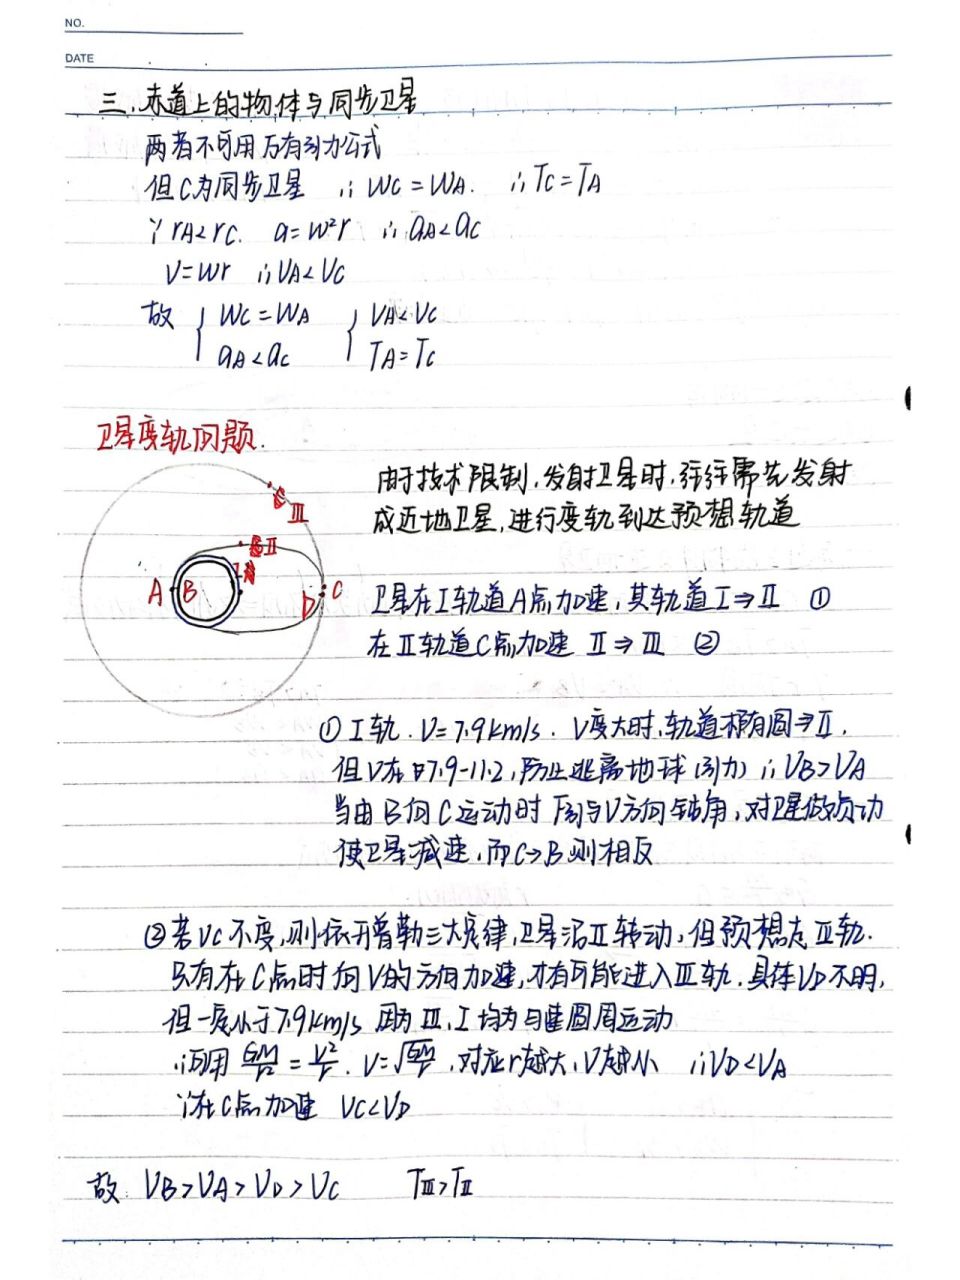 NO.
DATE
三.赤道上的物体与同步卫星
两者不可用万有引力公式
但C为同步卫星 ∴WC=WA. ∴TC=TA
∵rA<rC. a=w²r ∴aA<aC
V=wr ∴VA<VC
故 { WC=WA { VA<VC
aA<aC TA=TC
卫星变轨问题.
C
III
II
I
A B D C
由于技术限制,发射卫星时,往往需先发射
成近地卫星,进行变轨到达预想轨道
卫星在I轨道A点加速,其轨道I⇒II ①
在II轨道C点加速 II⇒III ②
①I轨.V=7.9km/s.V变大时,轨道椭圆⇒II.
但V在7.9-11.2,防止逃离地球(引力)∴VB>VA
当由B向C运动时F引与V方向钝角,对卫星做负功
使卫星减速,而C→B则相反
②若VC不变,则依开普勒三大定律,卫星沿II转动,但预想走III轨.
只有在C点时向V的方向加速,才有可能进入III轨.具体VD不明,
但一定小于7.9km/s 因为III,I均为匀速圆周运动
∴可用GM/r²=V²/r.V=√GM/r,对应r越大,V越小 ∴VD<VA
∵在C点加速 VC<VD
故 VB>VA>VD>VC TIII>TII